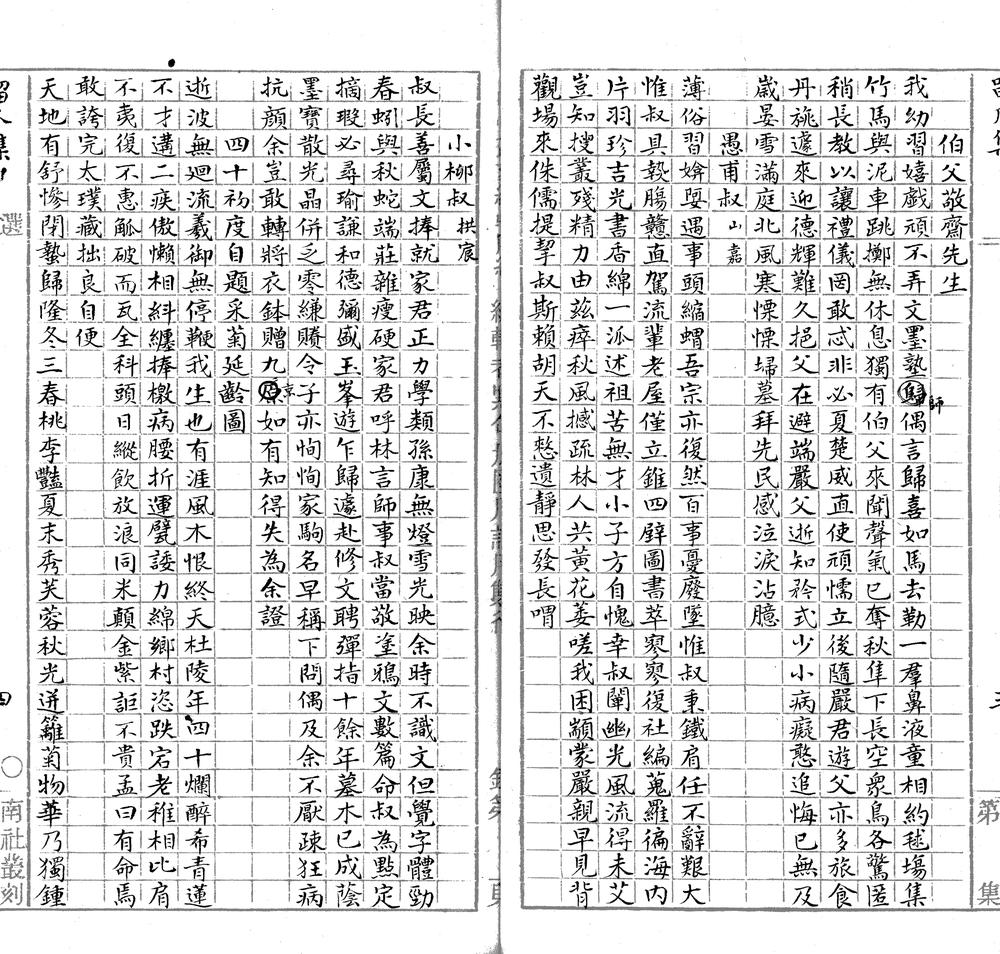 伯父敬齋先生
我幼習嬉戲頑不弄文墨塾歸師偶言歸喜如馬去勒一羣鼻液童相約毬場集
竹馬與泥車跳擲無休息獨有伯父來聞聲氣已奪秋隼下長空衆鳥各驚匿
稍長教以讓禮儀罔敢忒非必夏楚威直使頑懦立後隨嚴君遊父亦多旅食
丹旐遽來迎德輝難久挹父在避端嚴父逝知矜式少小病癡憨追悔已無及
歲晏雪滿庭北風寒慄慄埽墓拜先民感泣淚沾臆
愚甫叔山嘉
薄俗習媕娿遇事頭縮蝟吾宗亦復然百事憂廢墜惟叔秉鐵肩任不辭艱大
惟叔具熱腸戇直駕流輩老屋僅立錐四壁圖書萃寥寥復社編蒐羅徧海內
片羽珍吉光書香綿一派述祖苦無才小子方自愧幸叔闡幽光風流得未艾
豈知搜叢殘精力由茲瘁秋風撼疏林人共黃花萎嗟我困顓蒙嚴親早見背
觀場來侏儒提挈叔斯賴胡天不憖遺靜思發長喟
小柳叔拱宸
叔長善屬文捧就家君正力學類孫康無燈雪光映余時不識文但覺字體勁
春蚓與秋蛇端莊雜瘦硬家君呼林言師事叔當敬塗鴉文數篇命叔為點定
摘瑕必尋瑜謙和德彌盛玉峯遊乍歸遽赴修文聘彈指十餘年墓木已成蔭
墨寶散光晶併乏零縑賸令子亦恂恂家駒名早稱下問偶及余不厭疎狂病
抗顏余豈敢轉將衣鉢贈九原京如有知得失為余證
四十初度自題采菊延齡圖
逝波無迴流羲御無停鞭我生也有涯風木恨終天杜陵年四十爛醉希青蓮
不才遘二疾傲懶相糾纏捧檄病腰折運甓諉力綿鄉村恣跌宕老稚相比肩
不夷復不惠觚破而瓦全科頭日縱飲放浪同米顛金紫詎不貴孟曰有命焉
敢誇完太璞藏拙良自便
天地有舒慘閉蟄歸隆冬三春桃李豔夏末秀芙蓉秋光迸籬菊物華乃獨鍾
四
南社叢刻